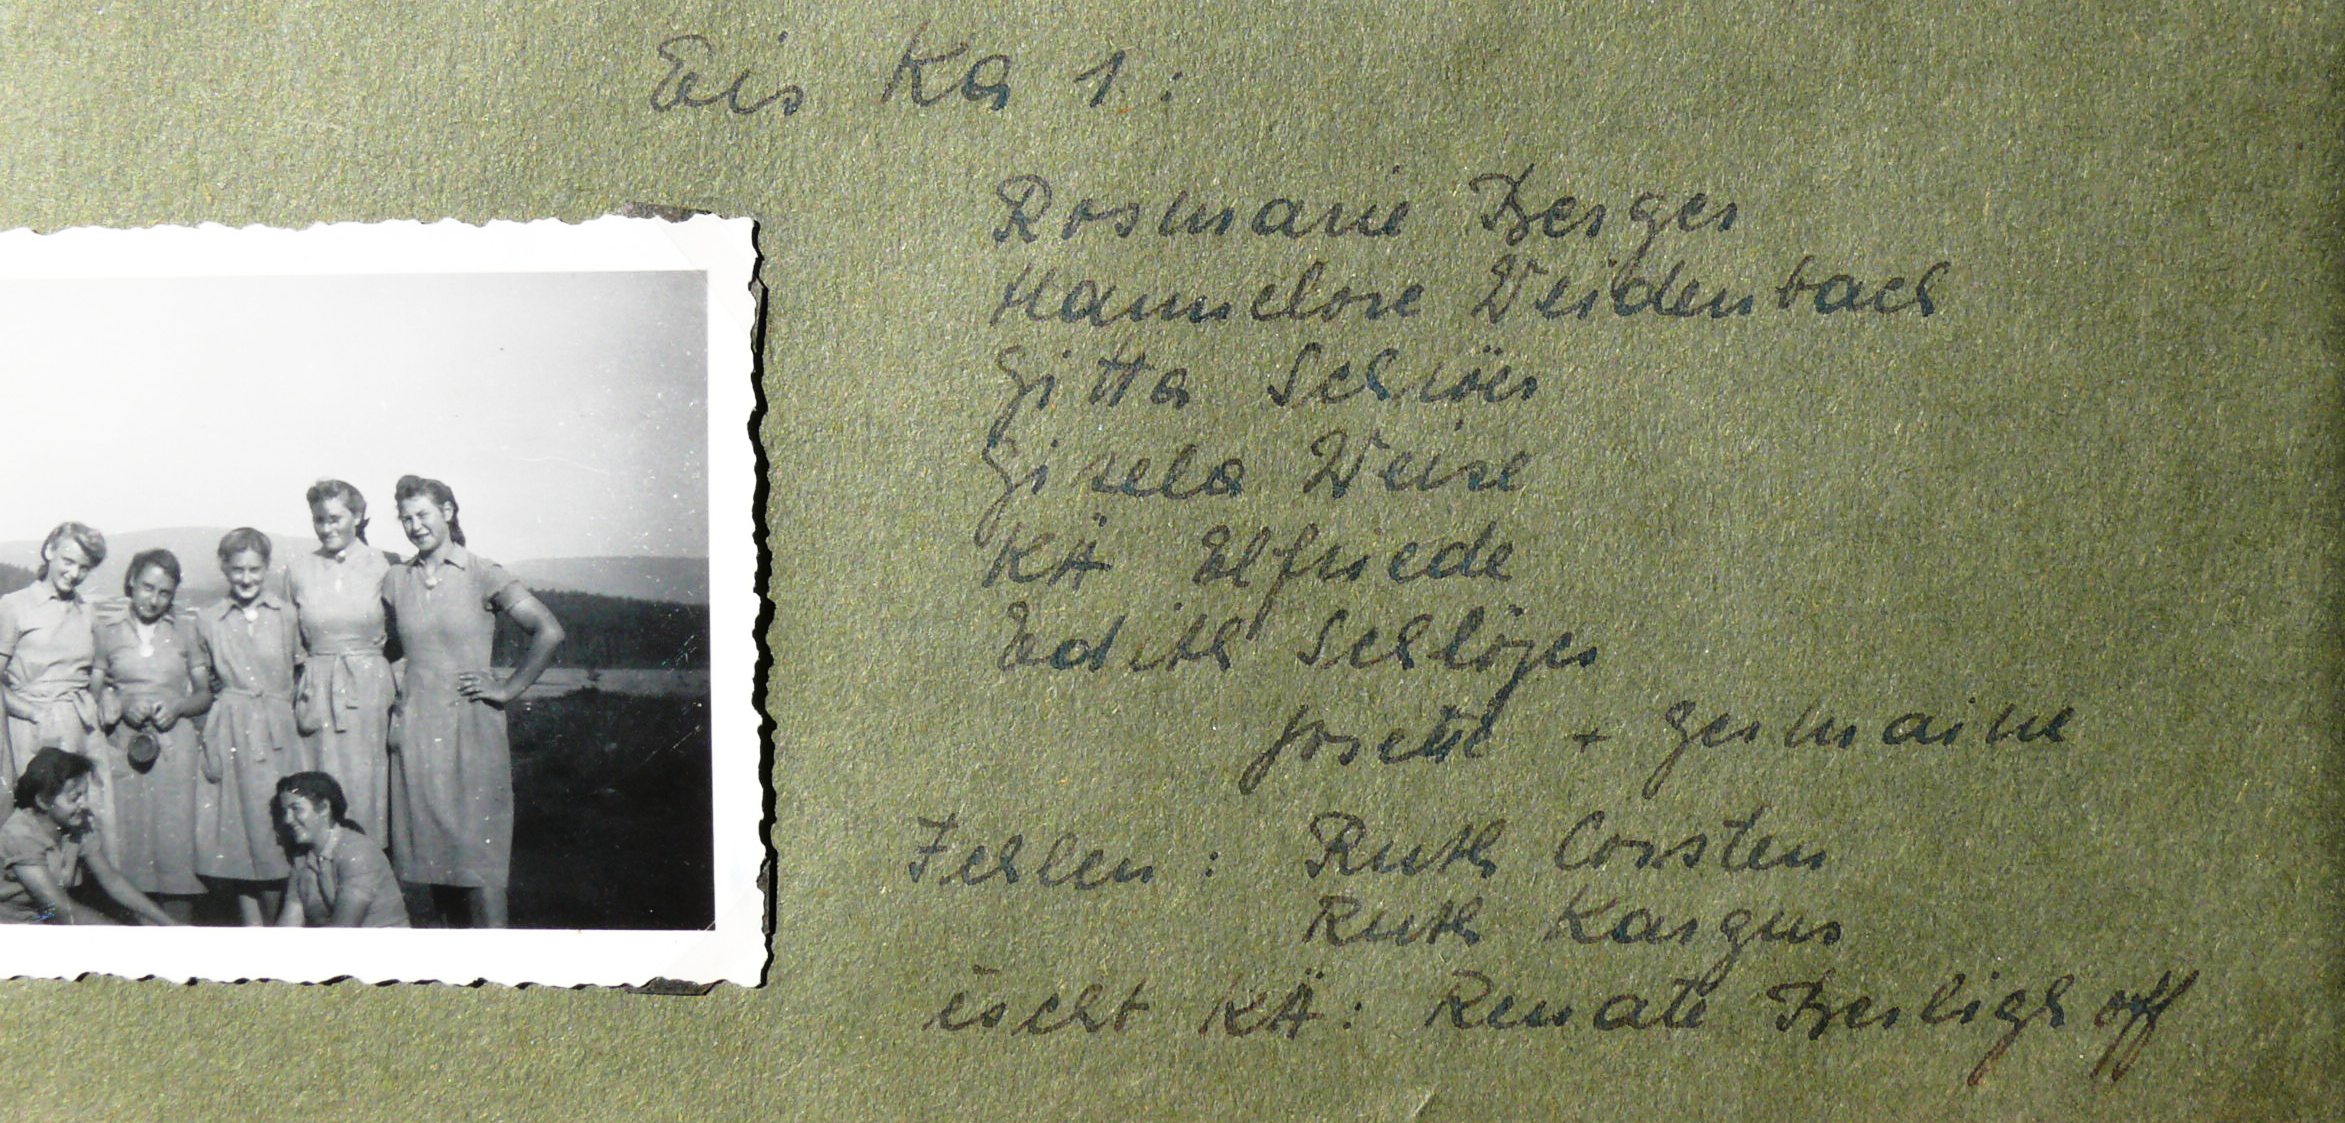 Eis Ka 1:
Rosmarie Berger
Hannelore Weidenbach
Gitta
Gisela Weise
KÄ Elfriede
Edith Schlöger
Josette + Germaine
Fehlen: Ruth Corsten
Ruth Kargus
KÄ: Renate Berlighoff